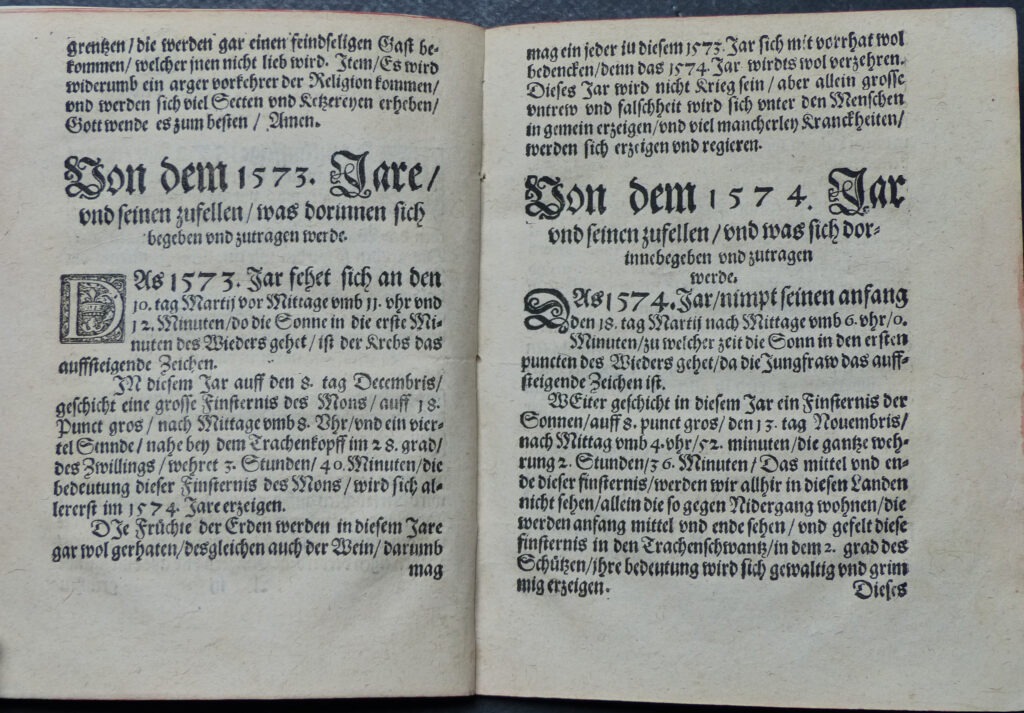 grentzen/die werden gar einen feindseligen Gast be-
kommen/welcher jnen nicht lieb wird. Item/Es wird
widerumb ein arger vorkehrer der Religion kommen/
vnd werden sich viel Secten vnd Ketzereyen erheben/
Gott wende es zum besten / Amen.
Von dem 1573. Jare/
vnd seinen zufellen/was dorinnen sich
begeben vnd zutragen werde.
DAs 1573. Jar fehet sich an den
10. tag Martij vor Mittage vmb 11. vhr vnd
12. Minuten/do die Sonne in die erste Mi-
nuten des Wieders gehet/ist der Krebs das
auffsteigende Zeichen.
IN diesem Jar auff den 8. tag Decembris/
geschicht eine grosse Finsternis des Mons/auff 18.
Punct gros/nach Mittage vmb 8. Vhr/vnd ein vier-
tel Stunde/nahe bey dem Trachenkopff im 28. grad/
des Zwillings/wehret 3. Stunden/40. Minuten/die
bedeutung dieser Finsternis des Mons/wird sich al-
lererst im 1574. Jare erzeigen.
DJe Früchte der Erden werden in diesem Jare
gar wol gerhaten/desgleichen auch der Wein/darumb
mag
mag ein jeder in diesem 1573. Jar sich mit vorrhat wol
bedencken/denn das 1574. Jar wirdts wol verzehren.
Dieses Jar wird nicht Krieg sein/aber allein grosse
vntrew vnd falschheit wird sich vnter den Menschen
in gemein erzeigen/vnd viel mancherley Kranckheiten/
werden sich erzeigen vnd regieren.
Von dem 1574. Jar
vnd seinen zufellen/vnd was sich dor-
innebegeben vnd zutragen
werde.
DAs 1574. Jar/nimpt seinen anfang
den 18. tag Martij nach Mittage vmb 6. vhr/0.
Minuten/zu welcher zeit die Sonn in den ersten
puncten des Wieders gehet/da die Jungfraw das auff-
steigende Zeichen ist.
WEiter geschicht in diesem Jar ein Finsternis der
Sonnen/auff 8. punct gros/den 13. tag Nouembris/
nach Mittag vmb 4. vhr/52. minuten/die gantze weh-
rung 2. Stunden/36. Minuten/Das mittel vnd en-
de dieser finsternis/werden wir allhir in diesen Landen
nicht sehen/allein die so gegen Nidergang wohnen/die
werden anfang mittel vnd ende sehen/vnd gefelt diese
finsternis in den Trachenschwantz/in dem 2. grad des
Schützen/jhre bedeutung wird sich gewaltig vnd grim
mig erzeigen.
Dieses